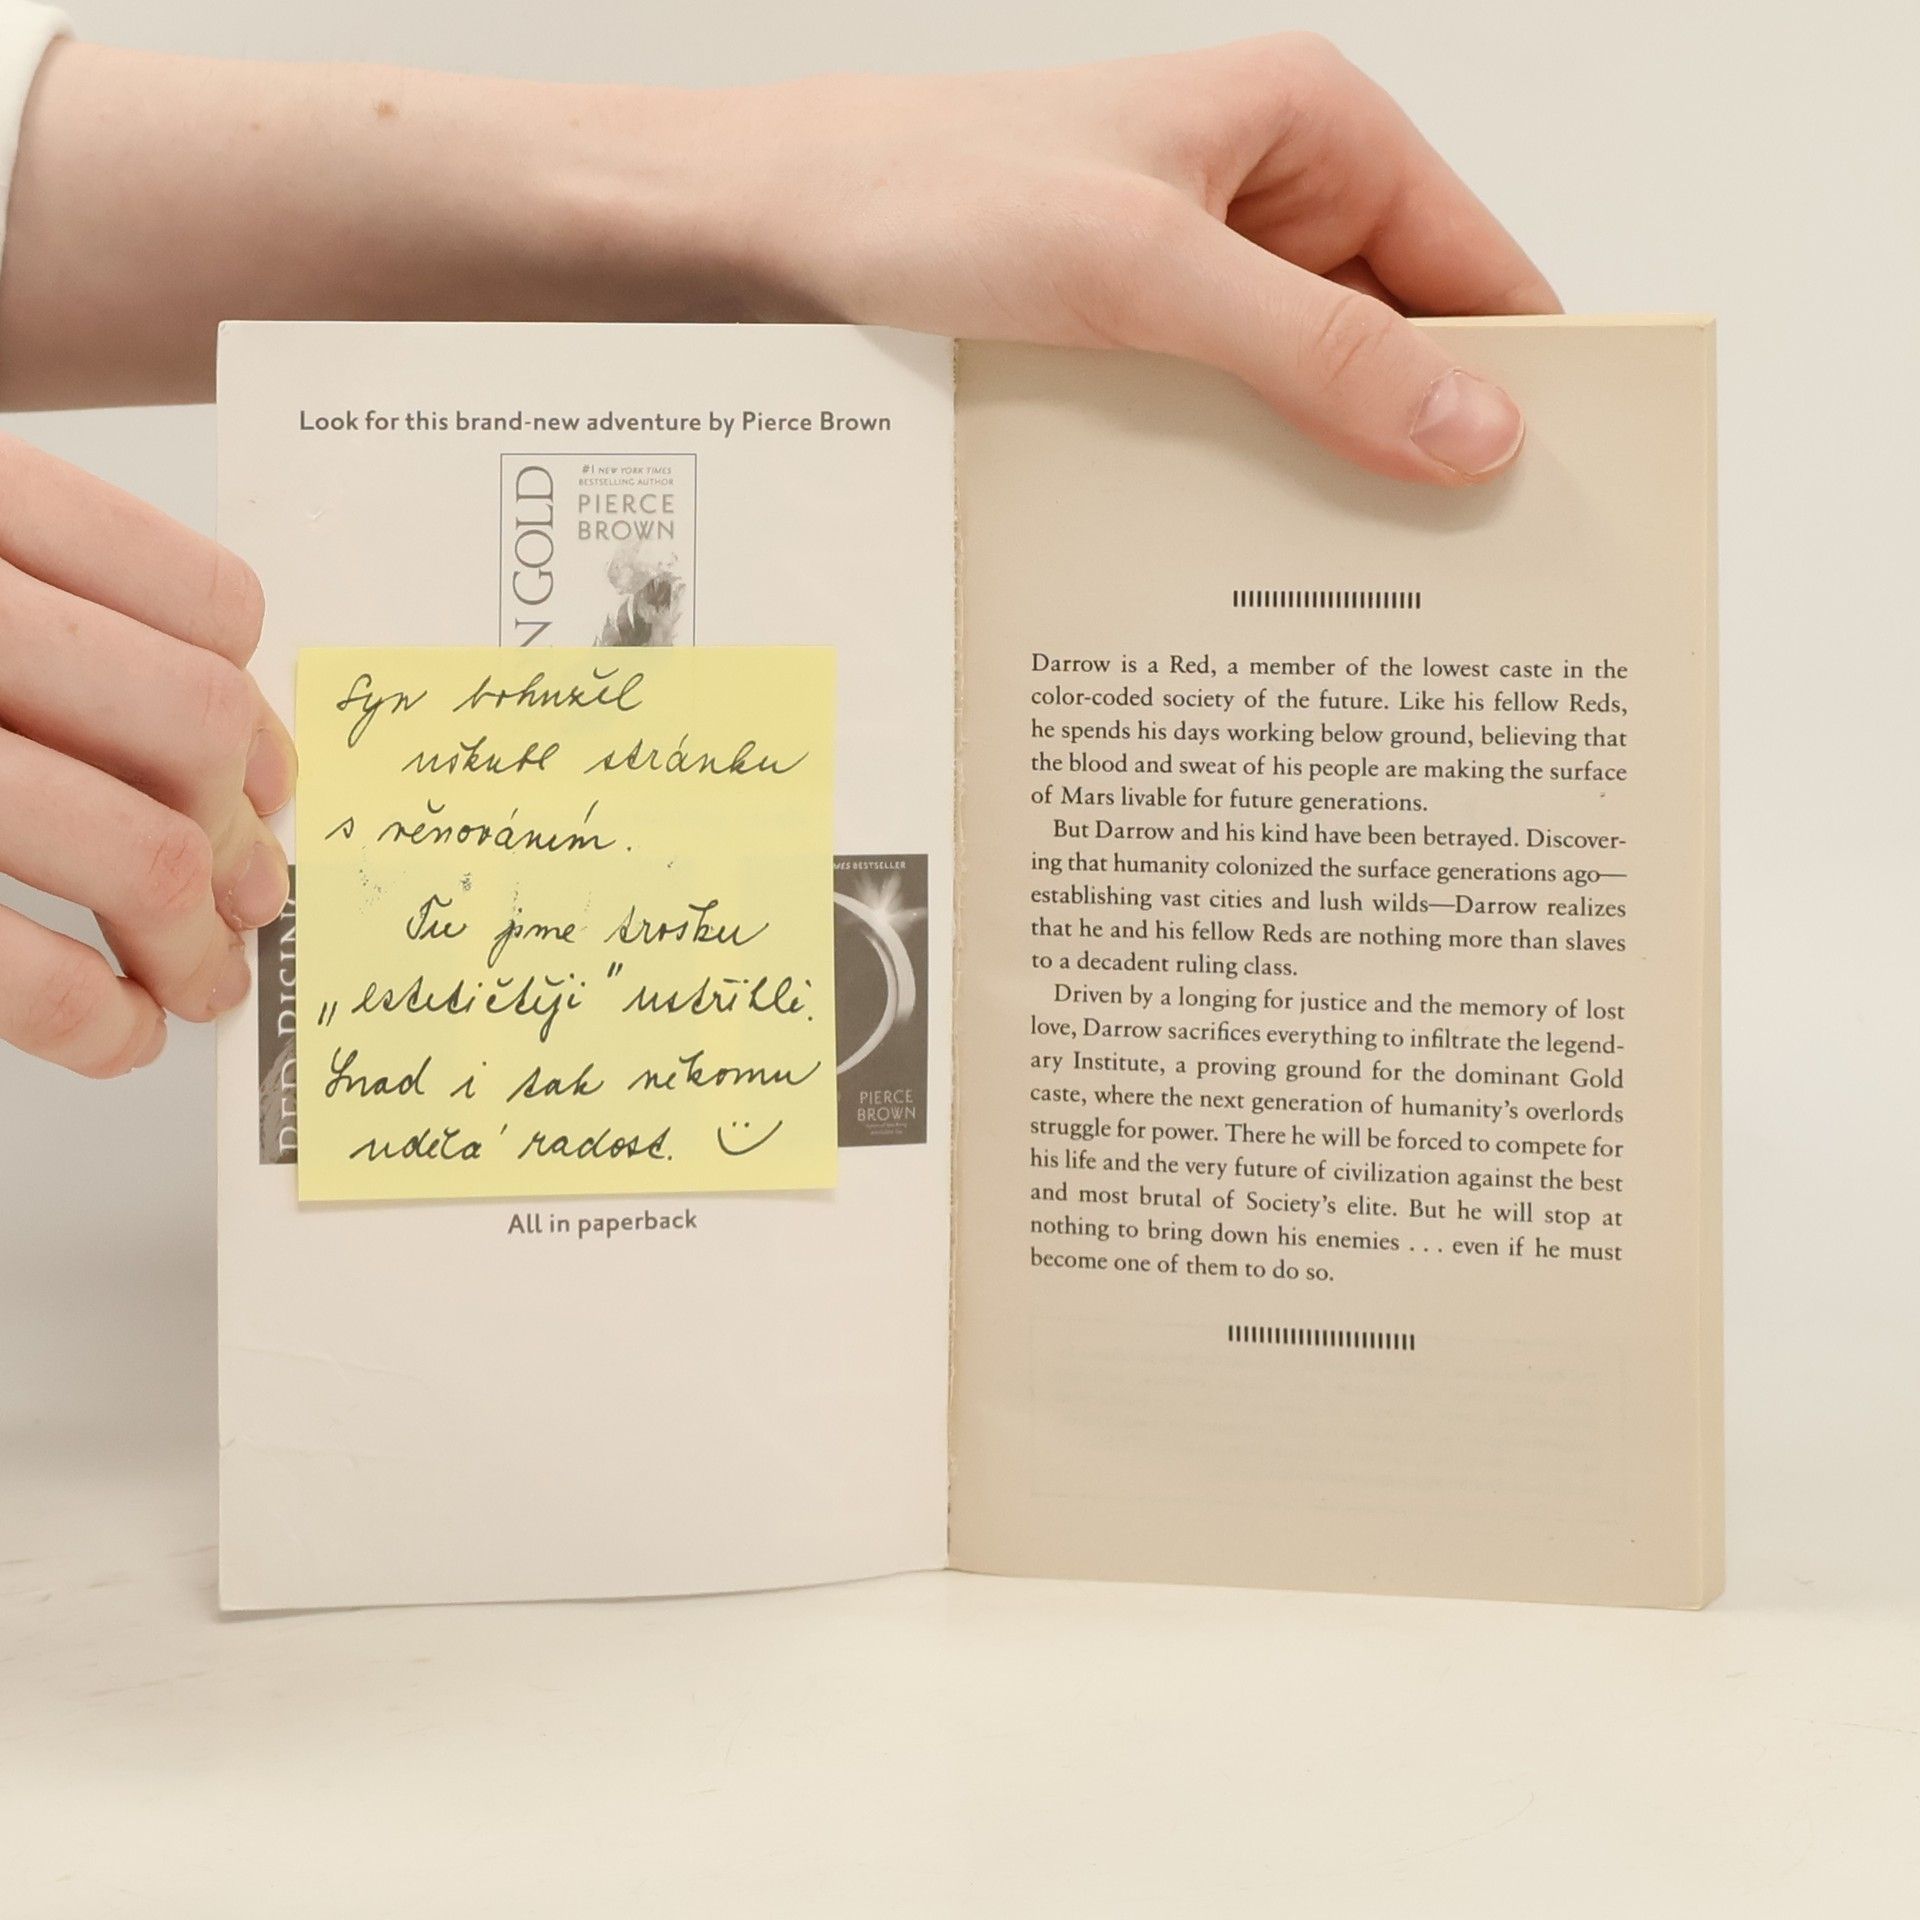 Look for this brand-new adventure by Pierce Brown
N GOLD
#1 NEW YORK TIMES
BESTSELLING AUTHOR
PIERCE
BROWN
Syn bohužel
uškubl stránku
s věnováním.
Tu jsme trošku
„estetičtěji" ustřihli.
Snad i tak někomu
udělá radost.
RED RISING
MES BESTSELLER
PIERCE
BROWN
All in paperback
Darrow is a Red, a member of the lowest caste in the
color-coded society of the future. Like his fellow Reds,
he spends his days working below ground, believing that
the blood and sweat of his people are making the surface
of Mars livable for future generations.
But Darrow and his kind have been betrayed. Discover-
ing that humanity colonized the surface generations ago—
establishing vast cities and lush wilds—Darrow realizes
that he and his fellow Reds are nothing more than slaves
to a decadent ruling class.
Driven by a longing for justice and the memory of lost
love, Darrow sacrifices everything to infiltrate the legend-
ary Institute, a proving ground for the dominant Gold
caste, where the next generation of humanity's overlords
struggle for power. There he will be forced to compete for
his life and the very future of civilization against the best
and most brutal of Society's elite. But he will stop at
nothing to bring down his enemies . . . even if he must
become one of them to do so.